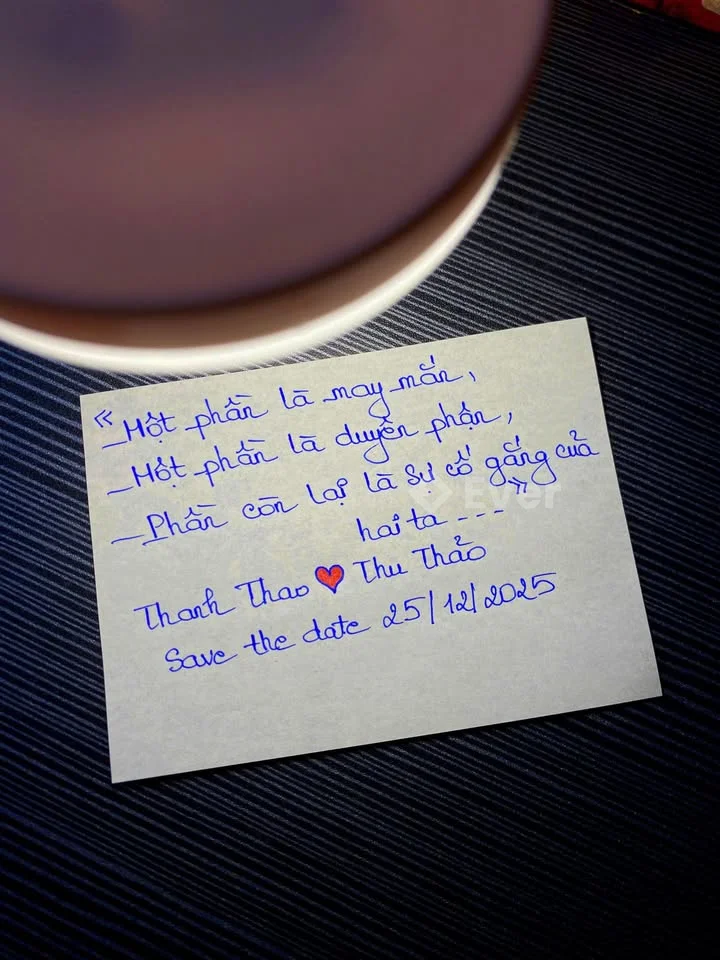 « _Một phần là may mắn,
_Một phần là duyên phận,
_Phần còn lại là sự cố gắng của
hai ta --- »
Thanh Thao ❤ Thu Thảo
Save the date 25/12/2025
Ever